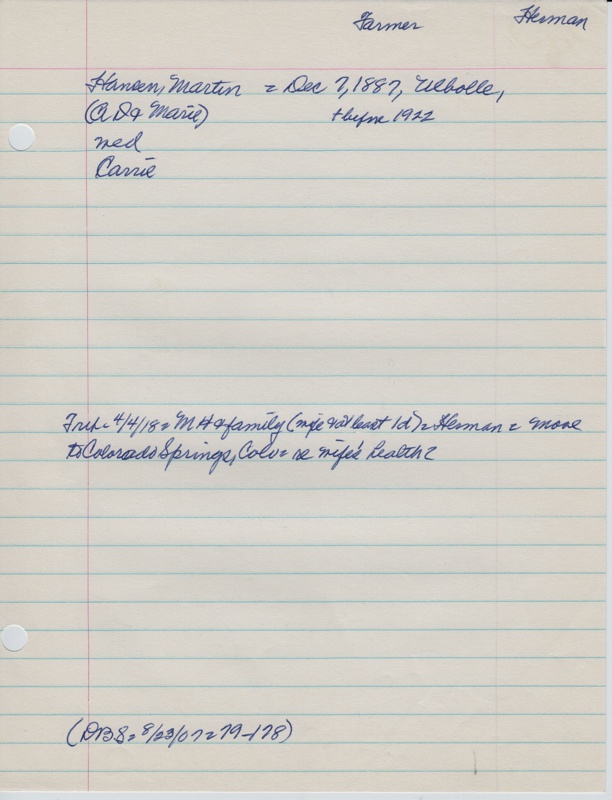 Farmer Herman
Hansen, Martin = Dec 7, 1887, Ulbolle,
(A D & Marie) + before 1922
med
Carrie
Trib = 4/4/18 = M H & family (wife & at least 1 d) = Herman = move
to Colorado Springs, Colo = re wife's health
(DBS = 8/23/07 = 79-178)